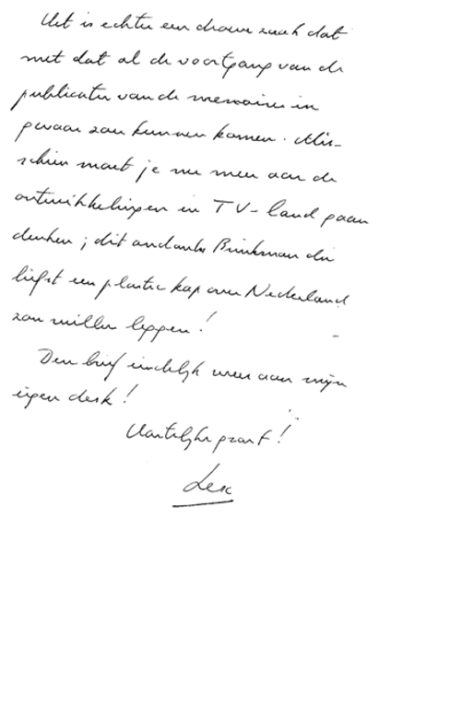 Het is echter een droeve zaak dat
met dat al de voortgang van de
publicatie van de memoires in
gevaar zou kunnen komen. Mis-
schien moet je nu meer aan de
ontwikkelingen in TV-land gaan
denken; dit ondanks Brinkman die
liefst een plastic kap over Nederland
zou willen leggen!
Den brief eindelijk weer aan mijn
eigen desk!
Hartelijke groet!
Lex